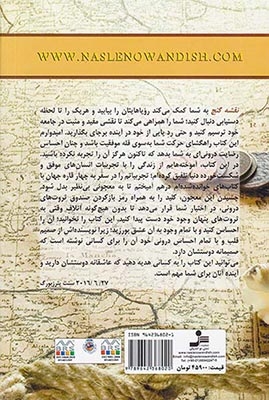 WWW.NASLENOWANDISH.COM
نقشه گنج به شما کمک می‌کند رؤیاهایتان را بیابید و هریک را تا لحظه
دستیابی دنبال کنید؛ شما را همراهی می‌کند تا نقشی مفید و مثبت در جامعه
خود ترسیم کنید و حتی رد پایی از خود در آینده برجای بگذارید. امیدوارم
این کتاب راهگشای حرکت شما به‌سوی قله موفقیت باشد و چنان احساس
رضایت درونی‌ای به شما بدهد که تاکنون هرگز آن را تجربه نکرده باشید.
در این کتاب، آموخته‌هایم از زندگی را با تجربیات انسان‌های موفق و
شکست خورده دنیا تلفیق کرده‌ام؛ تجربیاتم را در سفر به چهار قاره جهان با
کتاب‌های خوانده‌شده‌ام درهم آمیختم تا به معجونی بی‌نظیر بدل شود.
چشیدن این معجون، کلید را به همراه رمز بازکردن صندوق ثروت‌های
درونی، در اختیار شما قرار می‌دهد تا بدون هیچ‌گونه اتلاف وقتی به
ثروت‌های پنهان وجود خود دست پیدا کنید. این کتاب را نخوانید! آن را
احساس کنید و با تمام وجود به آن عشق بورزید؛ زیرا نویسنده‌اش از صمیم
قلب و با تمام احساس درونی خود آن را برای کسانی نوشته است که
صمیمانه دوستشان دارد.
می‌توانید این کتاب را به کسانی هدیه دهید که عاشقانه دوستشان دارید و
آینده آنان برای شما مهم است.
۲۰۱۶/۶/۲۷ سنت پترزبورگ
ISBN 964236802-1
9789642368020
قیمت: ۴۵۹۰۰ تومان